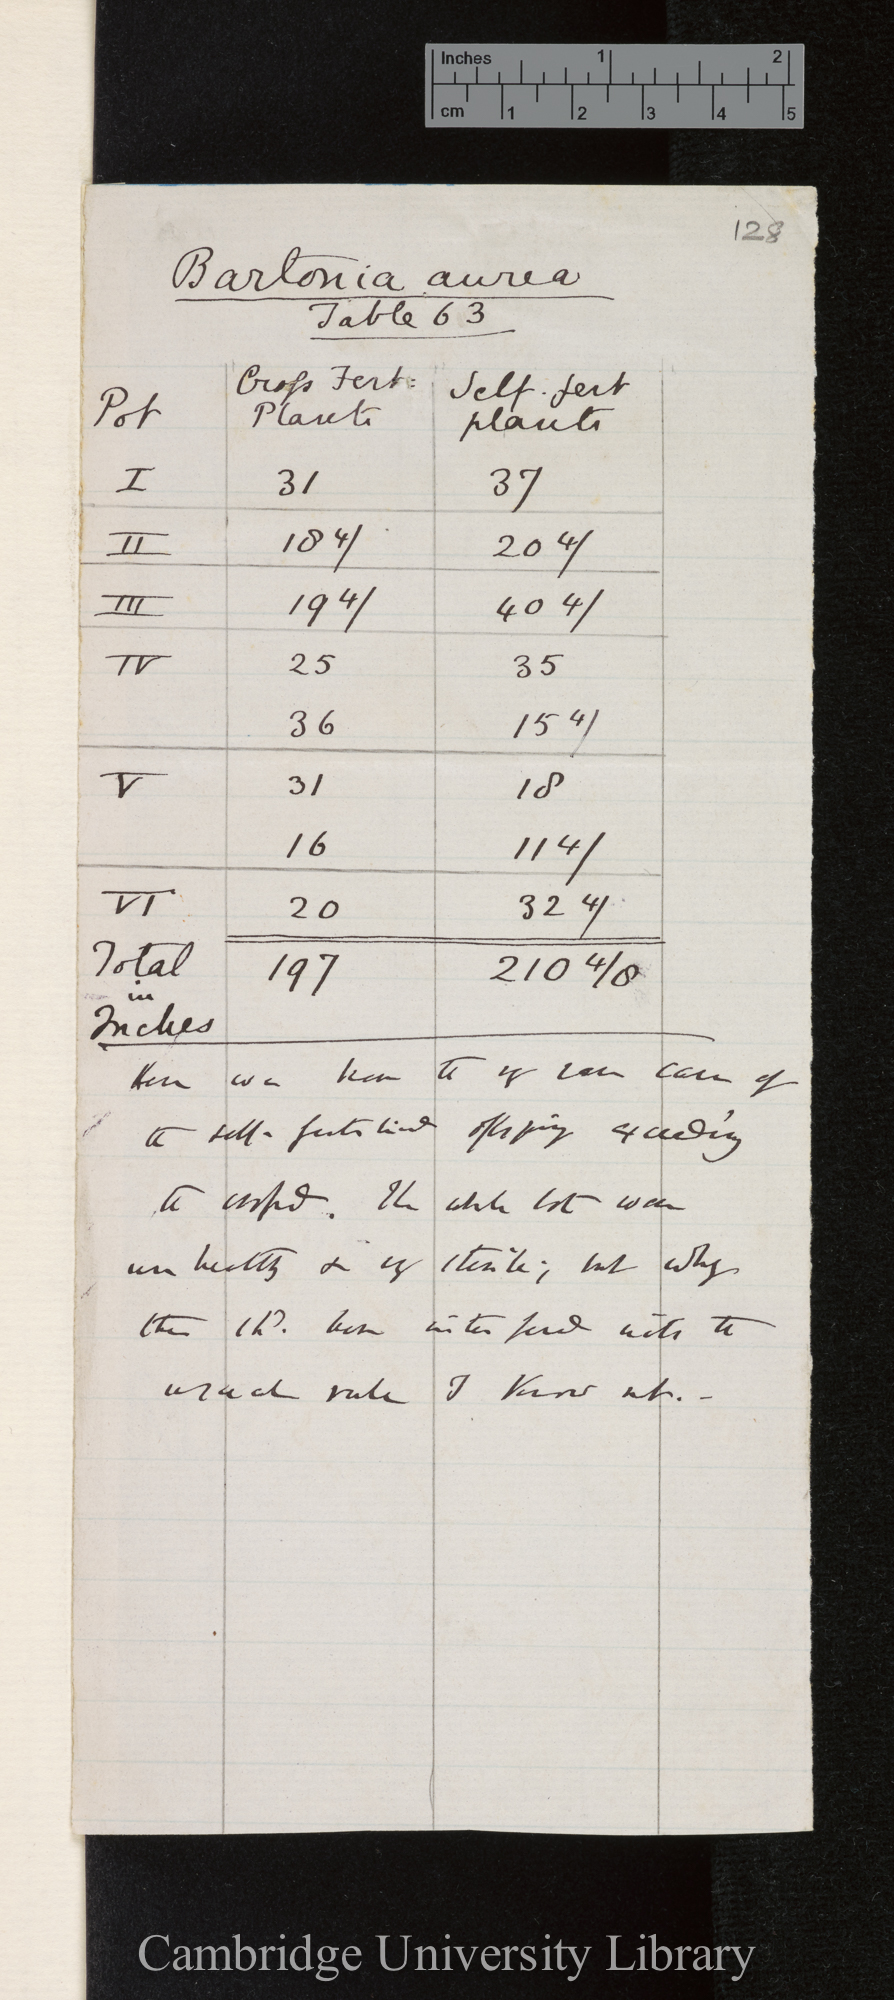 Inches 1 2
cm 1 2 3 4 5
128
Bartonia aurea
Table 63
Pot Cross Fert: Plants Self-fert plants
I 31 37
II 18 4/ 20 4/
III 19 4/ 40 4/
IV 25 35
36 15 4/
V 31 18
16 11 4/
VI 20 32 4/
Total in Inches 197 210 4/8
Here we have the of rare case of
the self-fertilised offspring exceeding
the crossed. The whole lot were
unhealthy & sterile; but why
this shd. have interfered with the
usual rule I know not.-
Cambridge University Library